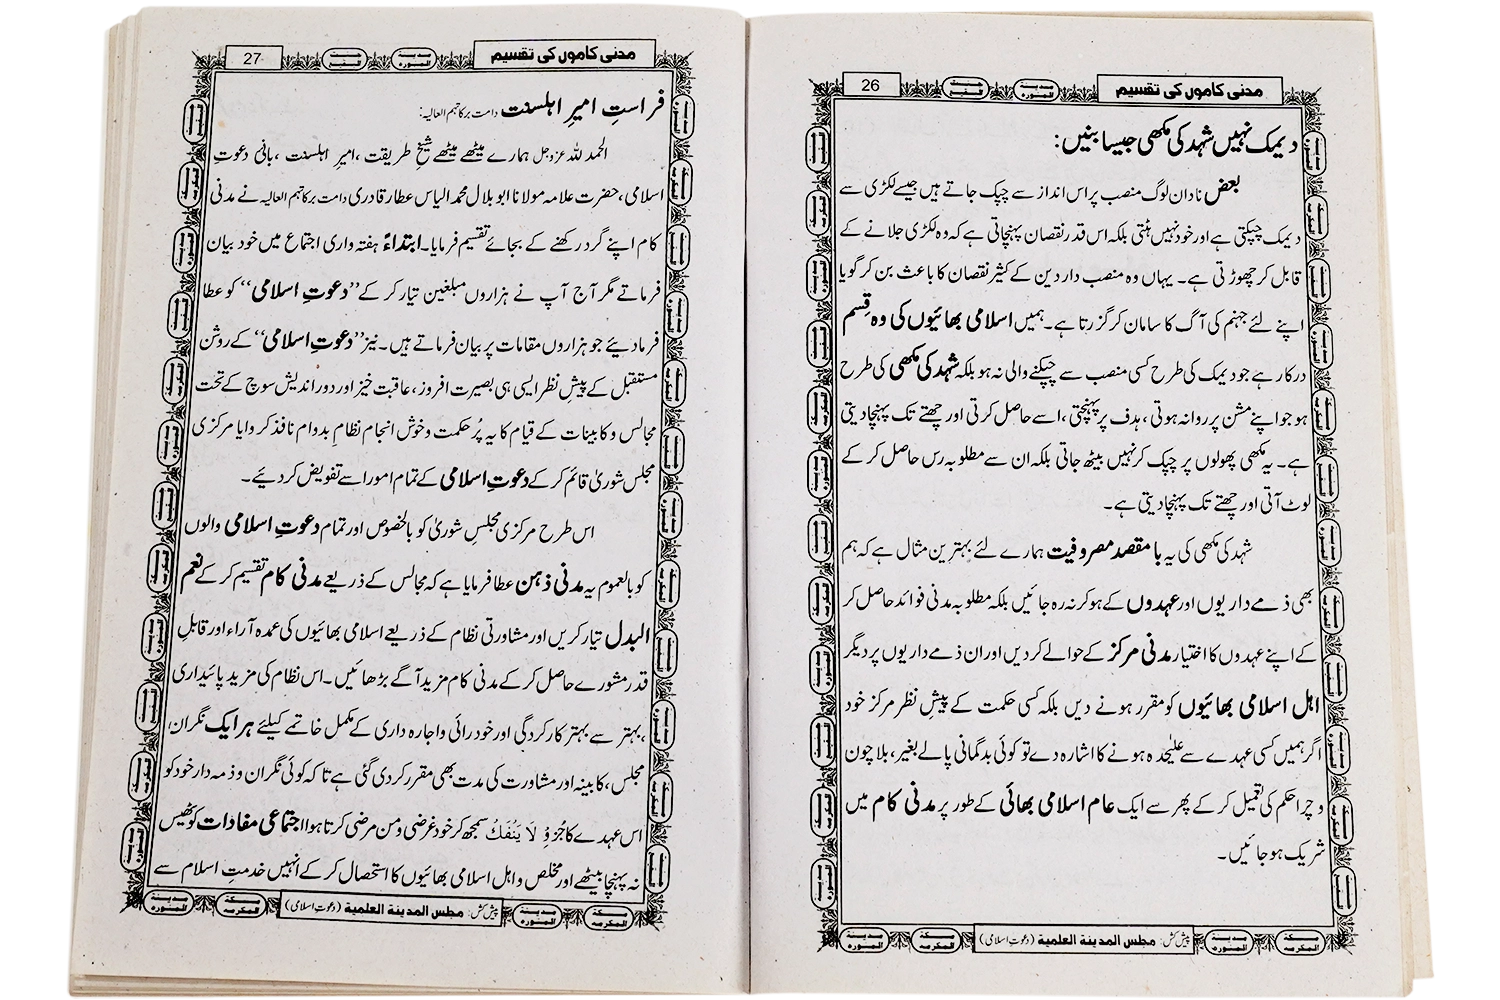 مدنی کاموں کی تقسیم
26
دیمک نہیں شہد کی مکھی جیسا بنیں:
بعض نادان لوگ منصب پر اس انداز سے چپک جاتے ہیں جیسے لکڑی سے
دیمک چپکتی ہے اور خود نہیں ہٹتی بلکہ اس قدر نقصان پہنچاتی ہے کہ وہ لکڑی جلانے کے
قابل کر چھوڑتی ہے۔ یہاں وہ منصب دار دین کے کثیر نقصان کا باعث بن کر گویا
اپنے لئے جہنم کی آگ کا سامان کر گزرتا ہے۔ ہمیں اسلامی بھائیوں کی وہ قسم
درکار ہے جو دیمک کی طرح کسی منصب سے چپکنے والی نہ ہو بلکہ شہد کی مکھی کی طرح
ہو جو اپنے مشن پر روانہ ہوتی، ہدف پر پہنچتی، اسے حاصل کرتی اور چھتے تک پہنچا دیتی
ہے۔ یہ مکھی پھولوں پر چپک کر نہیں بیٹھ جاتی بلکہ ان سے مطلوبہ رس حاصل کر کے
لوٹ آتی اور چھتے تک پہنچا دیتی ہے۔
شہد کی مکھی کی یہ بامقصد مصروفیت ہمارے لئے بہترین مثال ہے کہ ہم
بھی ذمے داریوں اور عہدوں کے ہو کر نہ رہ جائیں بلکہ مطلوبہ مدنی فوائد حاصل کر
کے اپنے عہدوں کا اختیار مدنی مرکز کے حوالے کر دیں اور ان ذمے داریوں پر دیگر
اہل اسلامی بھائیوں کو مقرر ہونے دیں بلکہ کسی حکمت کے پیشِ نظر مرکز خود
اگر ہمیں کسی عہدے سے علیٰحدہ ہونے کا اشارہ دے تو کوئی بدگمانی پالے بغیر، بلا چون
و چرا حکم کی تعمیل کر کے پھر سے ایک عام اسلامی بھائی کے طور پر مدنی کام میں
شریک ہو جائیں۔
پیش کش: مجلس المدينة العلمية (دعوتِ اسلامی)
مدنی کاموں کی تقسیم
27
فراستِ امیرِ اہلسنت دامت برکاتہم العالیہ:
الحمد للہ عزوجل ہمارے میٹھے میٹھے شیخِ طریقت، امیرِ اہلسنت، بانیٔ دعوتِ
اسلامی، حضرت علامہ مولانا ابو بلال محمد الیاس عطار قادری دامت برکاتہم العالیہ نے مدنی
کام اپنے گرد رکھنے کے بجائے تقسیم فرمایا۔ ابتداءً ہفتہ واری اجتماع میں خود بیان
فرماتے مگر آج آپ نے ہزاروں مبلغین تیار کر کے ’’دعوتِ اسلامی‘‘ کو عطا
فرما دیئے جو ہزاروں مقامات پر بیان فرماتے ہیں۔ نیز ’’دعوتِ اسلامی‘‘ کے روشن
مستقبل کے پیشِ نظر ایسی ہی بصیرت افروز، عاقبت خیز اور دور اندیش سوچ کے تحت
مجالس و کابینات کے قیام کا یہ پُر حکمت و خوش انجام نظام بدوام نافذ کر وایا مرکزی
مجلس شوریٰ قائم کر کے دعوتِ اسلامی کے تمام امور اسے تفویض کر دیئے۔
اس طرح مرکزی مجلسِ شوریٰ کو بالخصوص اور تمام دعوتِ اسلامی والوں
کو بالعموم یہ مدنی ذہن عطا فرمایا ہے کہ مجالس کے ذریعے مدنی کام تقسیم کر کے نعم
البدل تیار کریں اور مشاورتی نظام کے ذریعے اسلامی بھائیوں کی عمدہ آراء اور قابلِ
قدر مشورے حاصل کر کے مدنی کام مزید آگے بڑھائیں۔ اس نظام کی مزید پائیداری
، بہتر سے بہتر کارکردگی اور خود رائی و اجارہ داری کے مکمل خاتمے کیلئے ہر ایک نگران
مجلس، کابینہ اور مشاورت کی مدت بھی مقرر کر دی گئی ہے تا کہ کوئی نگران و ذمہ دار خود کو
اس عہدے کا جُزوِ لَا يَنْفَكُ سمجھ کر خود غرضی و من مرضی کرتا ہوا اجتماعی مفادات کو ٹھیس
نہ پہنچا بیٹھے اور مخلص و اہل اسلامی بھائیوں کا استحصال کر کے انہیں خدمتِ اسلام سے
پیش کش: مجلس المدينة العلمية (دعوتِ اسلامی)